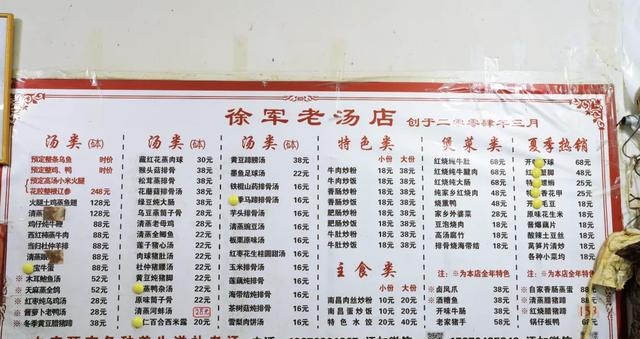 徐军老汤店 创于二零零肆年三月
汤类(钵)
预定整条乌鱼 时价
预定整鸡、鸭 时价
高汤小米火锅
花胶整根辽参 248元
火腿土鸡蒸鱼翅 128元
清蒸
鸡仔炖牛鞭 88元
西红柿蒸牛肉 88元
当归杜仲羊排 88元
清蒸
宝牛蛋 88元
※木耳鲍鱼汤 52元
※天麻蒸全鸽 52元
※红枣炖乌鸡汤 28元
※萝卜老鸭汤 28元
※冬季黄豆腊猪蹄 38元
汤类(钵)
藏红花蒸肉球 30元
猴头菇排骨 38元
松茸蒸排骨 38元
花蘑菇排骨 38元
绿豆炖大肠 38元
乌豆蒸筒子骨 28元
清蒸老母鸡 28元
清蒸金鲫鱼 28元
莲子猪心汤 22元
肉球猪肚汤 22元
杜仲猪腰汤 22元
黄豆炖猪脚 22元
蒸鸭杂汤 22元
原味筒子骨 22元
清蒸河蚌汤
仁百合西米露 20元
汤类(钵)
黄豆蹄膀汤 38元
墨鱼足球汤 22元
铁棍山药排骨汤 18元
季马蹄排骨汤 16元
芋头排骨汤 16元
清蒸豌豆汤 16元
板栗原味汤 16元
红枣花生桂圆甜汤 16元
玉米排骨汤 16元
莲藕炖排骨 16元
海带结炖排骨 16元
茶树菇炖排骨 16元
雪梨肉饼汤 16元
特色类
小份 大份
牛肉炒粉 18元 38元
牛肉炒饭 18元 38元
香肠炒粉 18元 38元
香肠炒饭 18元 38元
肥肠炒粉 18元 38元
肥肠炒饭 18元 38元
牛肚炒粉 18元 38元
牛肚炒饭 18元 38元
主食类
小份 大份
南昌肉丝炒粉 10元 20元
南昌蛋炒饭 10元 20元
特色水饺 20元 40元
煲菜类
红烧炖牛肚 68元
红烧炖牛腱肉 68元
红烧炖大肠 68元
纯家乡红烧肉 68元
烧熏鸭 48元
家乡外婆菜 28元
豆泡烧肉 28元
高汤腐竹 28元
排骨烧海带结 28元
注：※为本店全年特色
※卤凤爪 38元
※酒糟鱼 38元
开味牛肠 38元
老家猪手 58元
夏季热销
开 球 68元
红 脚 48元
特 蛳 25元
香 花甲 25元
开 毛豆 18元
原味花生米 18元
酱爆藕片 18元
酸辣土豆丝 18元
莴笋片清炒 18元
各种小菜均 18元
注：※为本店全年特色
※自家香肠蒸蛋 88元
※清蒸腊猪蹄
※红烧腊猪蹄
锅仔板鸭